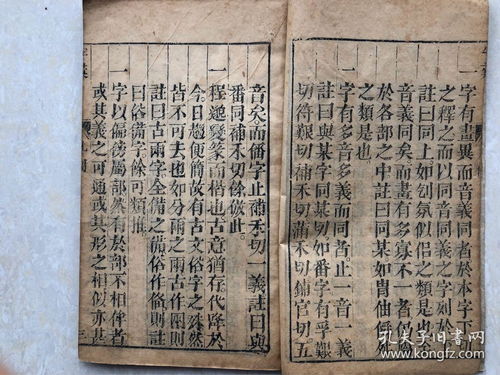 一字有畫異而音義同者於本字下
之釋之而以同音同義之字則於
註曰同上如㓞氛似侣之類是也
音義同矣而畫有多寡不一者仍
於各部之中註曰同某如胄伷
之類是也
一字有多音多義而同者止一音一義
註曰與某字同某切如番字有孚艱
切符艱切補禾切蒲禾切鋪官切五
音矣而番字止補禾切一義註曰與
番同補禾切餘倣此
一程邈變篆而楷也古意猶存代降於
今日趨便簡故有古文俗字之殊然
皆不可去也如分兩之兩古作㒳則
註曰古兩字全備之備俗作俻則註
曰俗備字餘可類推
一字以偏傍屬部然有於部不相侔者
或其義之可通或其形之相似亦甚
三
孔夫子旧书网
www.kongfz.com